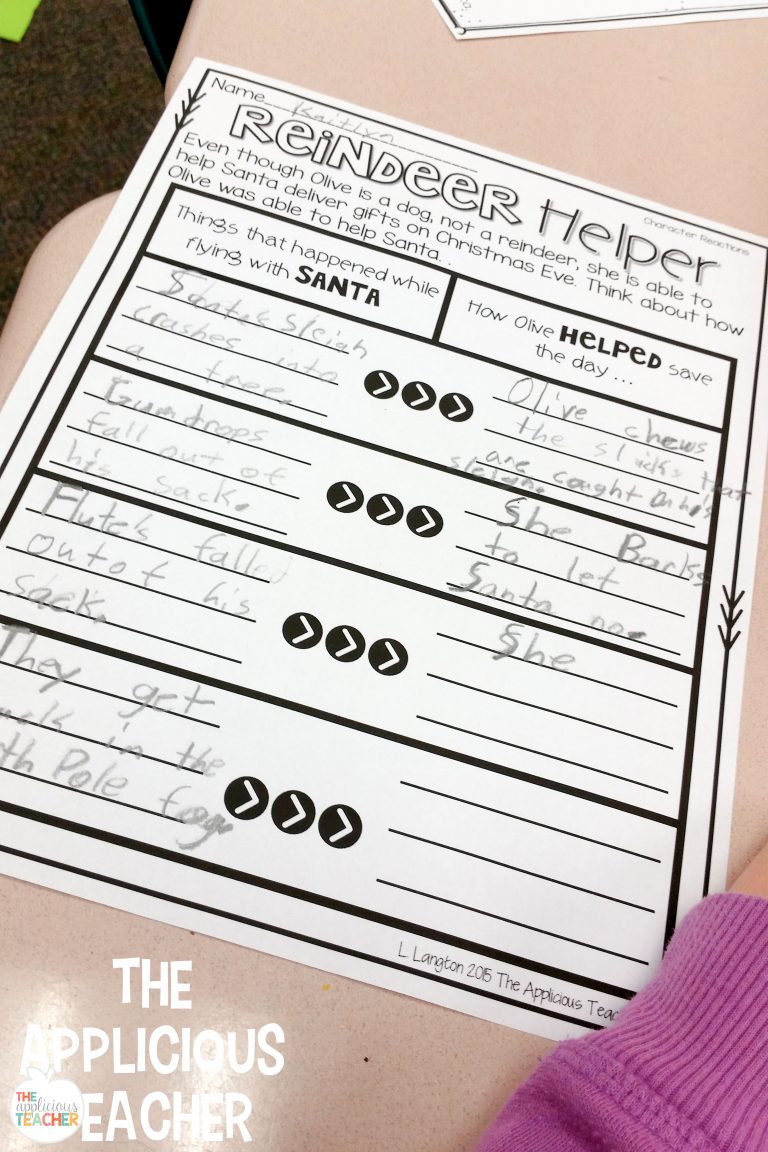 Name Kaitlyn
REINDEER Helper
Character Reactions
Even though Olive is a dog, not a reindeer, she is able to
help Santa deliver gifts on Christmas Eve. Think about how
Olive was able to help Santa...
Things that happened while
flying with SANTA
How Olive HELPED save
the day ...
Santa's Sleigh
crashes into
a tree.
Olive chews
the sticks that
are caught on his
sleigh.
Gumdrops
fall out of
his sack.
She Barks
to let
Santa no.
Flutes falled
out of his
sack.
She
They get
in the
Pole fog
L Langton 2015 The Applicious Teac
THE
APPLICIOUS
TEACHER
THE
applicious
TEACHER